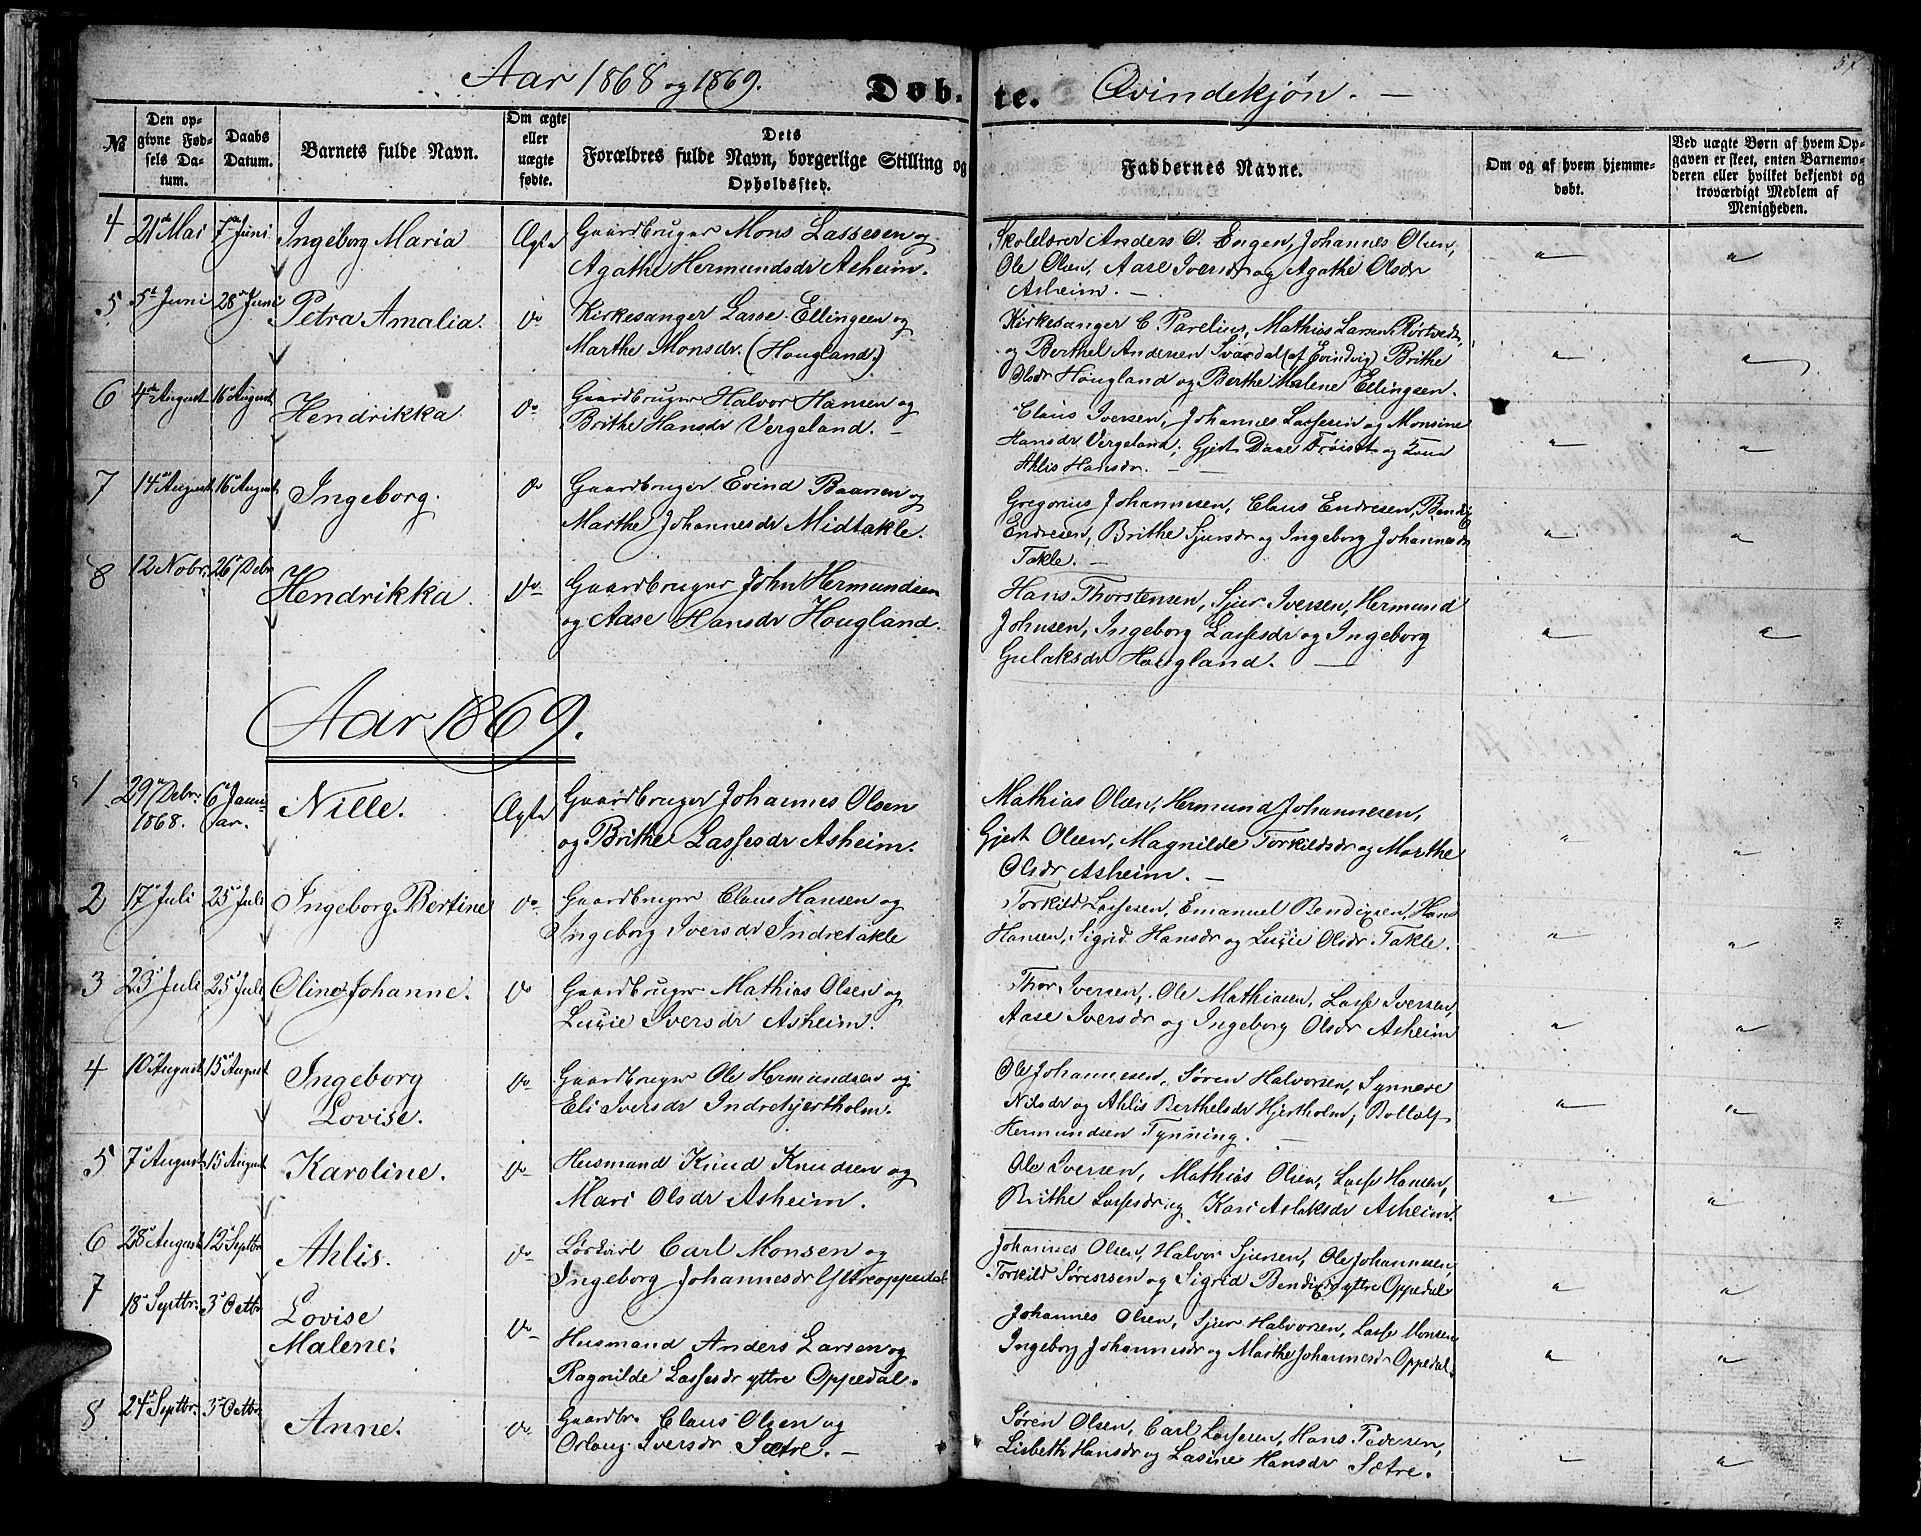 Aar 1868 og 1869. Døbte. Qvindekjøn. — 57
№ | Den opgivne Fødsels Datum. | Daabs Datum. | Barnets fulde Navn. | Om ægte eller uægte fødte. | Dets Forældres fulde Navn, borgerlige Stilling og Opholdssted. | Faddernes Navne. | Om og af hvem hjemmedøbt. | Ved uægte Børn af hvem Opgaven er skeet, enten Barnemoderen eller hvilket bekjendt og troværdigt Medlem af Menigheden.
4 21de Mai 7de Juni Ingeborg Maria Ægte Gaardbruger Mons Lassesen og
Agathe Hermundsdr Asheim.
Skolelærer Anders O. Engen, Johannes Olsen,
Ole Olsen, Aase Iversdr og Agathe Olsdr
Asheim. —
5 5te Juni 28de Juni Petra Amalia. do Kirkesanger Lasse Ellingsen og
Marthe Monsdr. (Hougland.)
Kirkesanger C. Parelius, Mathias Larsen Rörtvedt,
og Berthel Andersen Svardal (af Evindvig) Brithe
Olsdr Hougland og Berthe Malene Ellingsen.
6 4de August 16de August Hendrikka do Gaardbruger Halvor Hansen og
Brithe Hansdr Vergeland. —
Claus Iversen, Johannes Lassesen og Monsine
Hansdr Vergeland; Gjert Daae
Ahlis Hansdr. —
7 14de August 16de August Ingeborg. do Gaardbruger Evind Baarsen og
Marthe Johannesdr Midtakle.
Gregorius Johannesen, Claus Endresen, Bendix
Endresen, Brithe Sjursdr og Ingeborg Johannesdr
Takle. —
8 12 Nobr. 26de Debr Hendrikka. do Gaardbruger John Hermundsen
og Aase Hansdr Hougland.
Hans Thorstensen, Sjur Iversen, Hermund
Johnsen, Ingeborg Lassesdr og Ingeborg
Gulaksdr Hougland. —
Aar 1869.
1 29de Debr. 1868. 6te Januar. Nille. Ægte Gaardbruger Johannes Olsen
og Brithe Lassesdr Asheim.
Mathias Olsen, Hermund Johannesen,
Gjert Olsen, Magnilde Torkildsdr og Marthe
Olsdr Asheim. —
2 17de Juli 25de Juli Ingeborg Bertine do Gaardbruger Claus Hansen og
Ingeborg Iversdr Indretakle
Torkild Lassesen, Emanuel Bendixsen, Hans
Hansen, Sigrid Hansdr og Lucie Olsdr Takle.
3 23de Juli 25de Juli Oline Johanne. do Gaardbruger Mathias Olsen og
Lucie Iversdr Asheim.
Thor Iversen, Ole Mathiasen, Lasse Iversen,
Aase Iversdr og Ingeborg Olsdr Asheim
4 10de August 15de August Ingeborg
Lovise. do Gaardbruger Ole Hermundsen og
Eli Iversdr Indrehjertholm.
Ole Johannesen, Søren Halvorsen, Synneve
Nilsdr og Ahlis Berthelsdr Hjertholm, Bottolf
Hermundsen Tynning. —
5 7de August 15de August Karoline. do Husmand Knud Knudsen og
Mari Olsdr Asheim.
Ole Iversen, Mathias Olsen, Lasse Hansen,
Brithe Lassesdr og Kari Aslaksdr Asheim.
6 28de August 12te Septbr Ahlis. do Løskarl Carl Monsen og
Ingeborg Johannesdr Ytreoppedal
Johannes Olsen, Halvor Sjursen, Ole Johannesen,
Torkild Sørensen og Sigrid Bendixdr ytre Oppedal
7 18de Septbr. 3de Octbr Lovise
Malene. do Husmand Anders Larsen og
Ragnilde Lassesdr ytre Oppedal.
Johannes Olsen, Sjur Halvorsen, Lasse Monsen
Ingeborg Johannesdr og Marthe Johannesdr Oppedal.
8 24de Septbr. 3de Octbr. Anne. do Gaardbr. Claus Olsen og
Iversdr Sætre. —
Søren Olsen, Carl Lassesen, Hans Pedersen,
Lisbeth Hansdr og Lasine Hansdr Sætre.